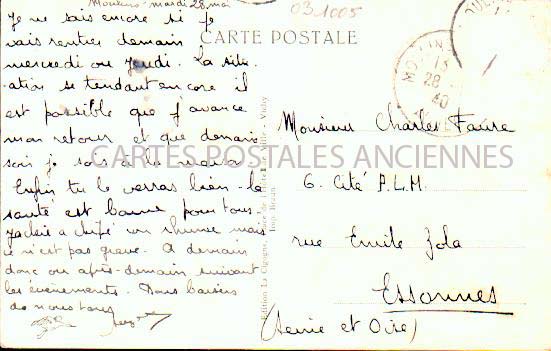 Moulins - mardi 28 mai
031005
Je ne sais encore si je
vais rentrer demain
mercredi ou jeudi. La situ-
ation se tendant encore il
est possible que j'avance
mon retour et que demain
soir je sois à la maison
Enfin tu le verras bien. la
santé est bonne pour tous.
a chipé un rhume mais
ce n'est pas grave. A demain
donc ou après-demain suivant
les évènements. Bons baisers
de nous tous
CARTE POSTALE
MOULINS
28
40
Edition La Cigogne, Vichy
Imp.
CARTES POSTALES ANCIENNES
Monsieur Charles Faure
6. Cité P.L.M.
rue Emile Zola
Essonnes
(Seine et Oise)